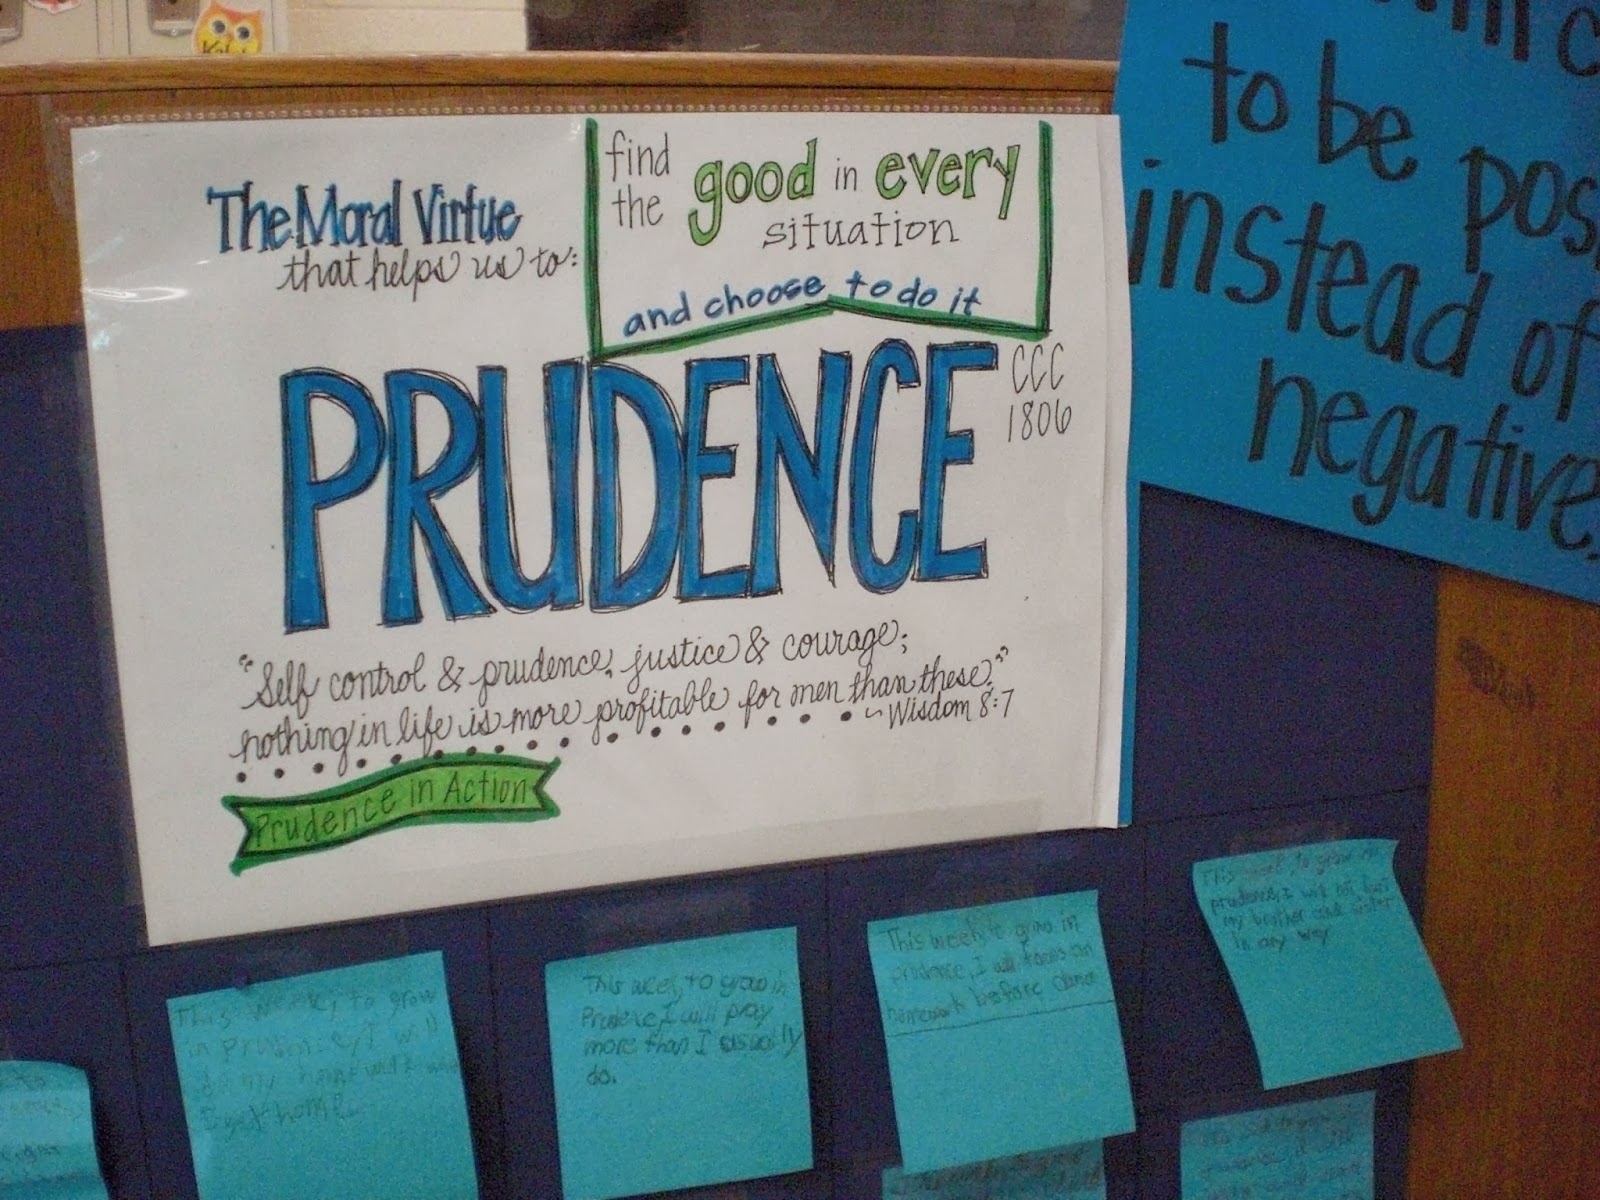 The Moral Virtue
that helps us to:
find
the
good in every
situation
and choose to do it
PRUDENCE
CCC
1806
"Self control & prudence, justice & courage;
nothing in life is more profitable for men than these."
~Wisdom 8:7
Prudence in Action
to be pos
instead of
negative.
This week, to grow
in prudence, I will
do my homework when
I get home.
This week, to grow in
Prudence, I will pray
more than I usually
do.
This week, to grow in
prudence, I will focus on
homework before dance
This week, to grow in
prudence, I will not hurt
my brother and sister
in any way